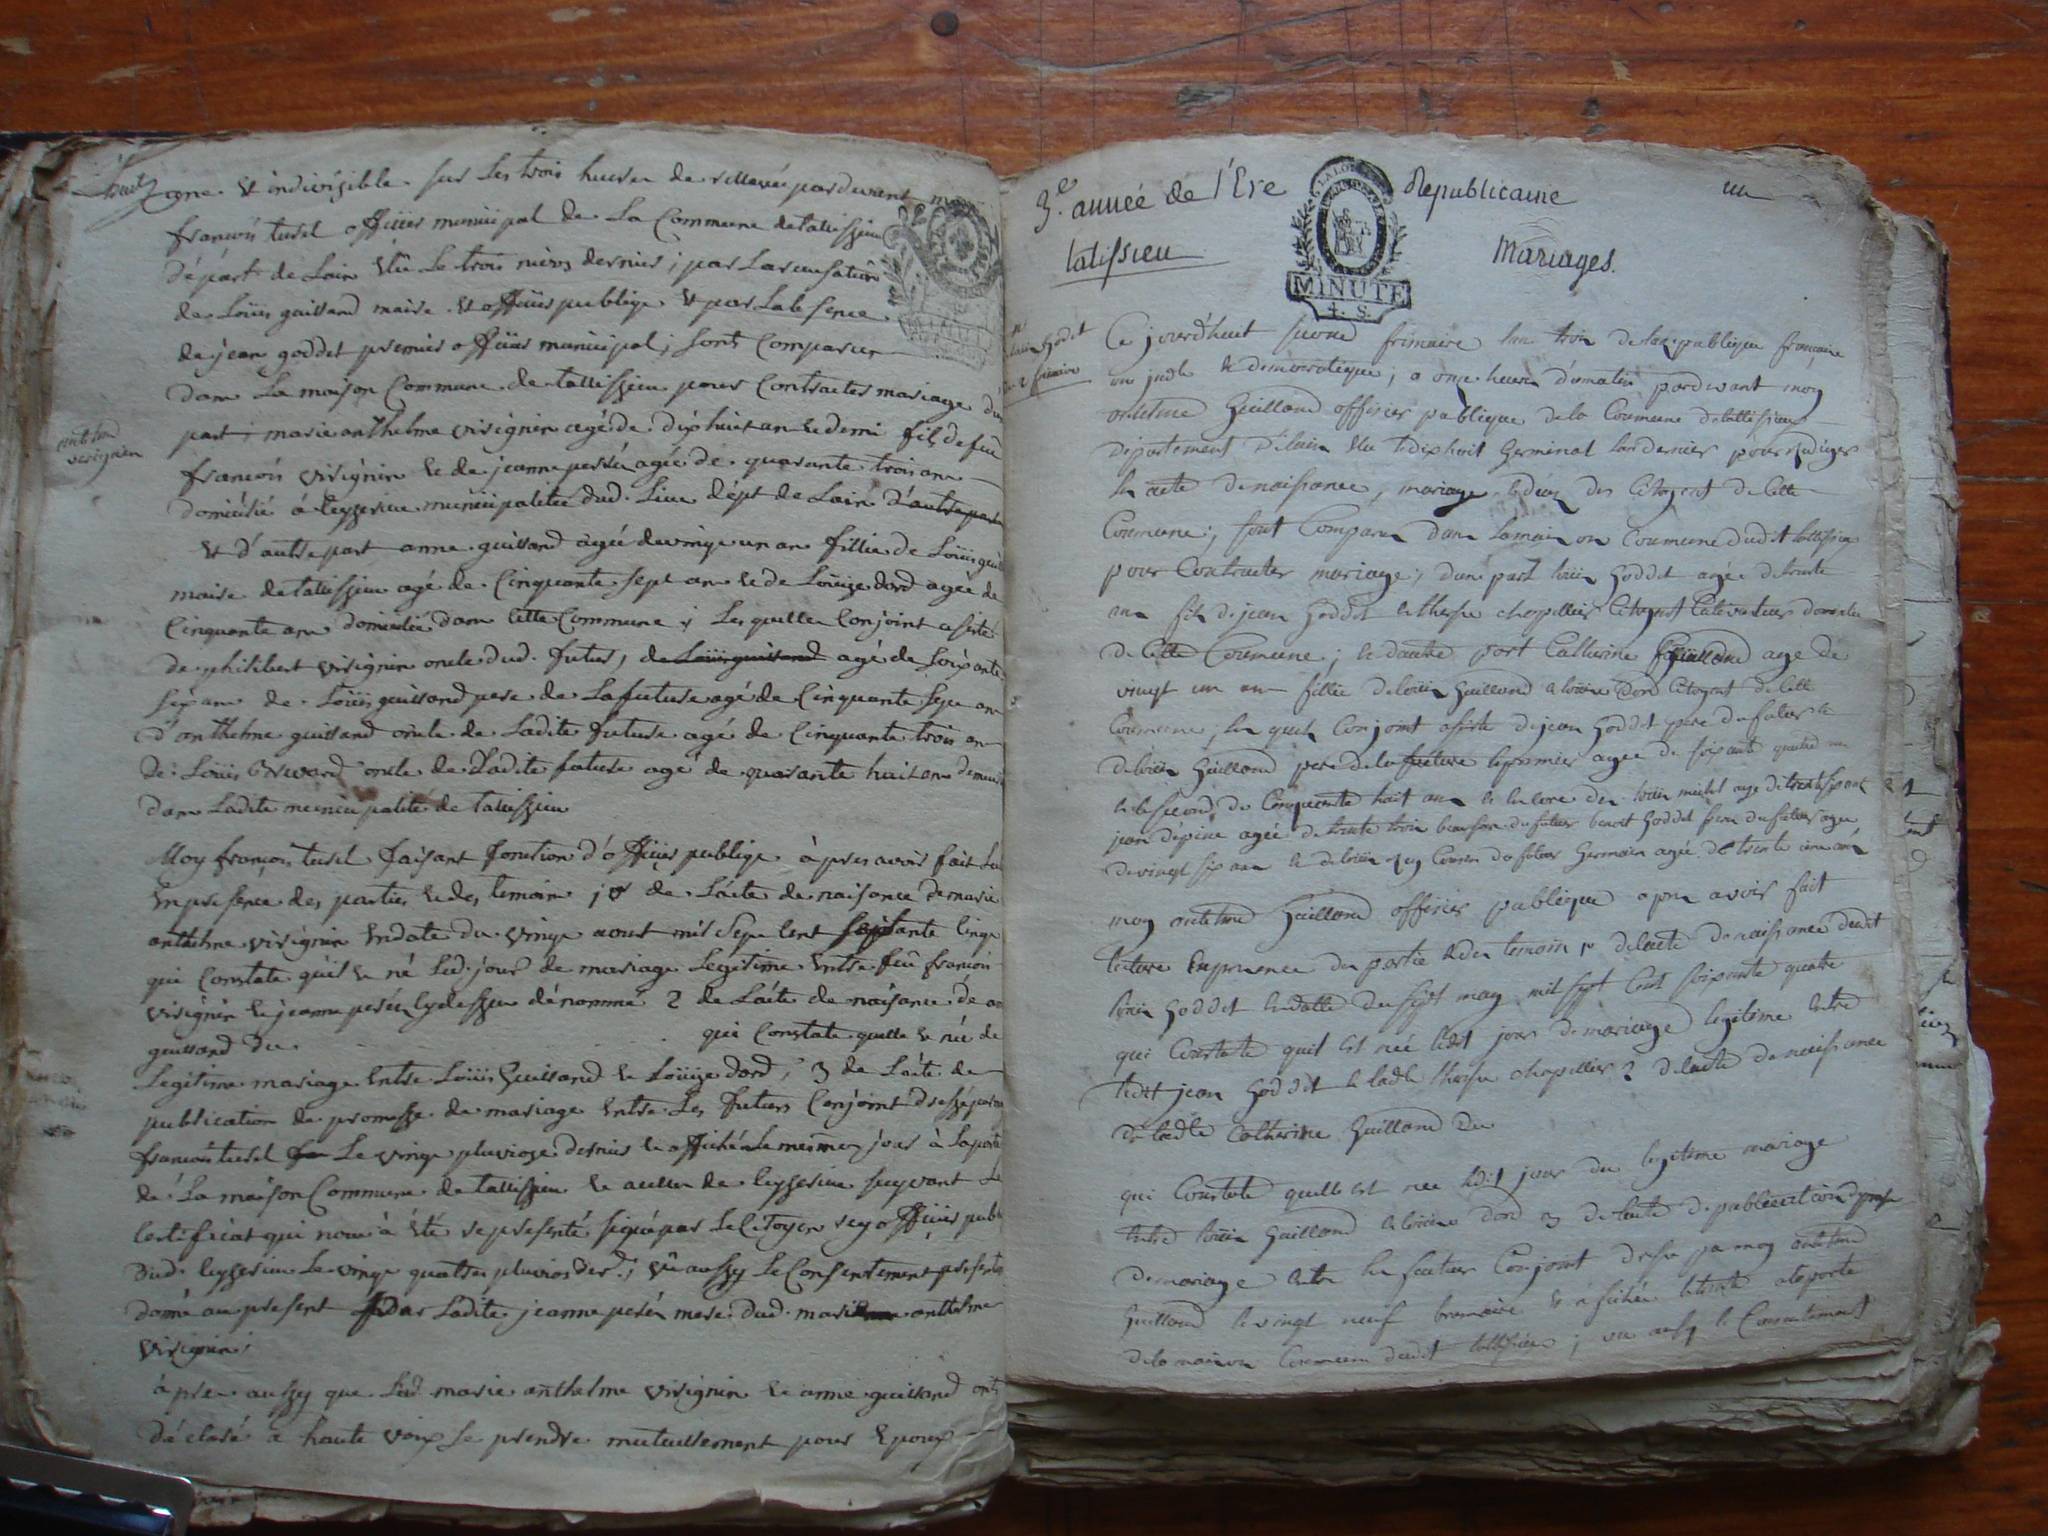 une & indivisible. sur Les trois heures de rellevée pardevant moy
françois tusel officier municipal de La Commune de tallissieu
départ de Lain Elû Le trois nivos dernier; par La
de Loüis guilland maire & officier publiqe & par Labsence
de jean goddet premier officier municipal; sont Comparus
dans La maison Commune de tallissieu pour Contracter mariage dune
part; marie anthelme visignin agé de dixhuit an & demi fils de feu
françois visignin & de jeanne peréz agée de quarante trois ans
domicilié à leyssieu municipalitée dud. Lieu dépt de Lain d'autre part
anthelm
visignin
& d'autre part anne guilland agée de vingt un an fillie de Loüis guil
maire de tallissieu agé de Cinquante sept ans & de Loüize dord agée de
Cinquante ans domiciliée dans Cette Commune; Les quelles Conjoint asisté
de philibert visignin oncle dud. futur, de Loüis guilland agé de Soixante
six ans de Loüis guilland pere de La future agé de Cinquante Sept ans
d'anthelme guilland oncle de Ladite future agé de Cinquante trois an
de Loüis oncle de Ladite future agé de quarante huit ans demeur
dans Ladite municipalité de tallissieu
Moy françois tusel faisant fonction d'officier publiqe après avoir fait Lec
En presence des parties & des temoin 1° de Lacte de naisance de marie
anthelme visignin Endate du vingt aoust mil Sept Cent soixante Cinqe
qui Constate quil & né Led. jour de mariage Legitime Entre feû françois
visignin & jeanne peréz cydessu dénommé 2 de Lacte de naisance de an
guilland du qui Constate quelle & née de
Legitime mariage Entre Loüis Guilland & Loüize dord, 3 de Lacte de
publication de promesse de mariage Entre Les futurs Conjoint dressé par
françois tusel Le vingt pluviose dernier & affiché Le mesme jour à La porte
de La maison Commune de tallissieu & a celle de leyssieu suyvant Le
Certificat qui nous à été representé signé par Le Citoyen rey officier publi
dud. leyssieu Le vingt quatre pluvios der.; vû aussy Le Consentement presente
donné au present par Ladite jeanne peréz mere dud. marie anthelme
visignin;
àpres aussy que Led. marie anthelme visignin & anne guilland ont
déclaré à haute voix Se prendre mutuellement pour Epoux
3e. année de l'Ere Republicaine
un
talissieu
Mariages.
MINUTE
4. S.
Loüis Godet
2 frimaire
Ce jourdhuit second frimaire lan trois de la republique française
une jndle & democratique; a onze heures dumatin pardevant moy
antelme Guilland officier publique de la Commune de tallissieu
département de lain élu le dixhuit Germinal lan dernier pour rediger
les acte de naissance, mariage & deces des Citoyent de Cette
Commune; sont Comparus dans la maison Commune dudit tallissieu
pour Contracter mariage, dune part loüis Goddet agée de trente
ans fils de jean Goddet & therese chapellier Citoyent Cultivateur
de Cette Commune; & dautre part Catherine Guilland age de
vingt un ans fillie de loüis Guilland & loüise dord Citoyent de Cette
Commune, les quels Conjoint asisté de jean Goddet pere du futur &
de loüis Guilland pere de la future le premier agée de soixante quatre ans
& le second de Cinquante huit ans & encore de loüis michel age de trente sept ans
jean dépine agée de trente trois beaufrere du futur benoit Goddet frere du futur agée
de vingt six ans & de loüis rey Cousin du futur Germain agée de trente cinc ans
moy antelme Guilland officier publique apres avoir fait
lecture En presence des partie & des temoin 1° de lacte de naissance dudit
loüis Goddet Endatte du sept may mil sept Cent soixante quatre
qui Constate quil est née ledit jour de mariage legitime Entre
ledit jean Goddet & ladte therese chapellier 2 de lacte de naissance
de ladte Catherine Guilland du
qui Constate quelle est née ledit jour du legitime mariage
Entre loüis Guilland & loüise dord 3 de lacte de publication de promese
de mariage Entre les futeur Conjoint dressé par moy antelme
Guilland le vingt neuf brumaire & afichée a la porte
de la maison Commune dudit tallissieu; vu aussy le Consentement